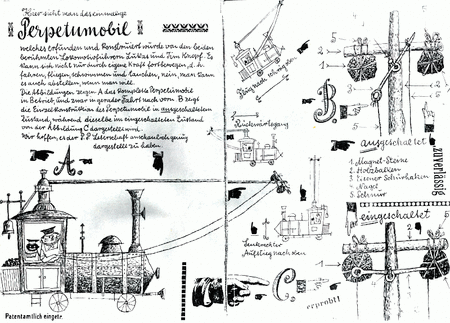 Hier sieht man das einmalige
Perpetumobil
welches erfunden und konstruiert wurde von den beiden
berühmten Lokomotivführern Lukas und Jim Knopf. Es
kann sich nicht nur durch eigene Kraft fortbewegen, d.h.
fahren, fliegen, schwimmen und tauchen, nein, man kann
es auch abstellen, wenn man will.
Die Abbildungen zeigen A das komplette Perpetumobil
in Betrieb, und zwar in gerader Fahrt nach vorn. B zeigt
die Einzelkonstruktion des Perpetumobil im ausgeschalteten
Zustand, während dieselbe im eingeschalteten Zustand
von der Abbildung C dargestellt wird.
Wir hoffen, es der P.P. Leserschaft anschaulich genug
dargestellt zu haben.
A.
Patentamtlich eingetr.
Flug nach schräg oben
Rückwärtsgang
Senkrechter
Aufstieg nach oben
B.
ausgeschaltet
1. Magnet-Steine
2. Holzbalken
3. Eiserner Schürhaken
4. Nagel
5. Schnur
zuverlässig
eingeschaltet
C.
erprobt!